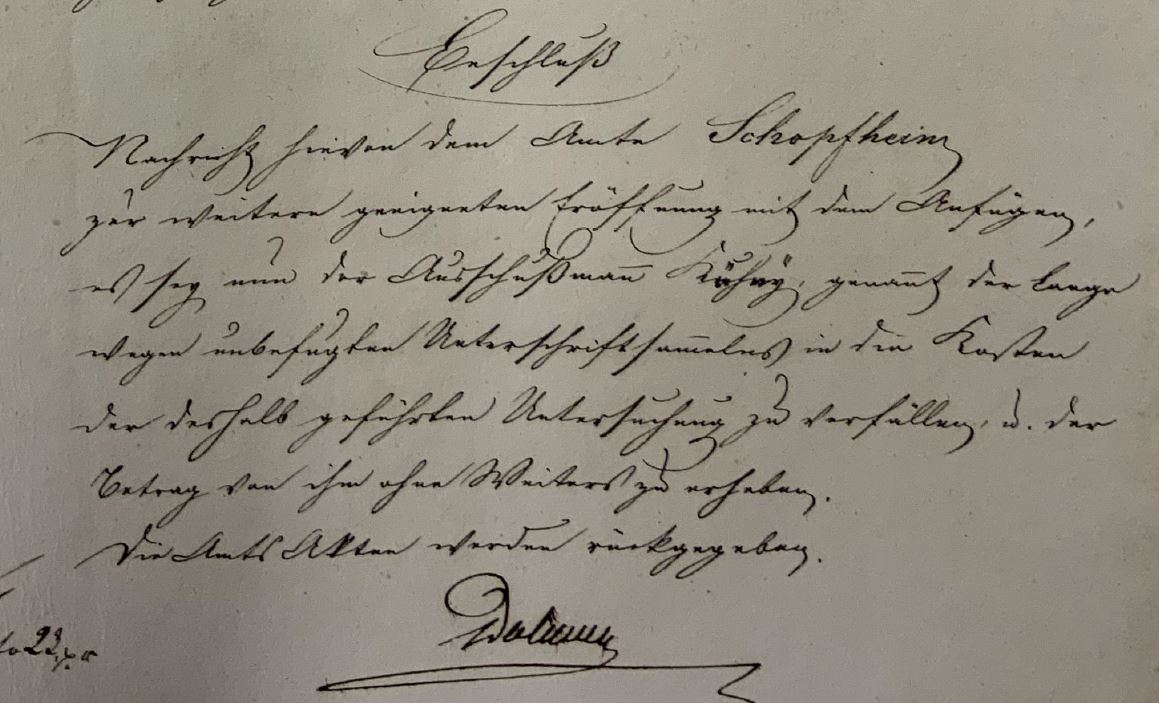 Beschluß
Nachricht hievon dem Amte Schopfheim
zur weitern geeigneten Eröffnung mit dem Anfügen,
es sey nun der Ausschußmann Kühny, genannt der lange
wegen unbefugten Unterschriftsammelns in die Kosten
der deshalb geführten Untersuchung zu verfällen, u. der
Betrag von ihm ohne Weiters zu erheben.
Die Amts Akten werden rückgegeben.